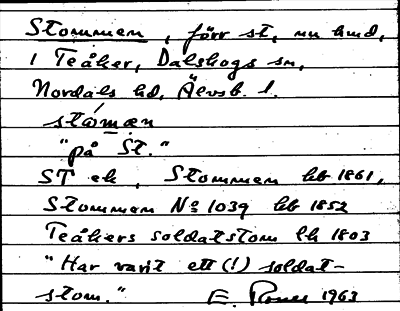 Stommen, förr st, nu hmd,
i Teåker, Dalskogs sn,
Nordals hd, Älvsb. l.
stómæn
"på St."
ST ek, Stommen hb 1861,
Stommen No 1039 hb 1852
Teåkers soldatstom lh 1803
"Har varit ett (!) soldat-
stom."
E. 1963